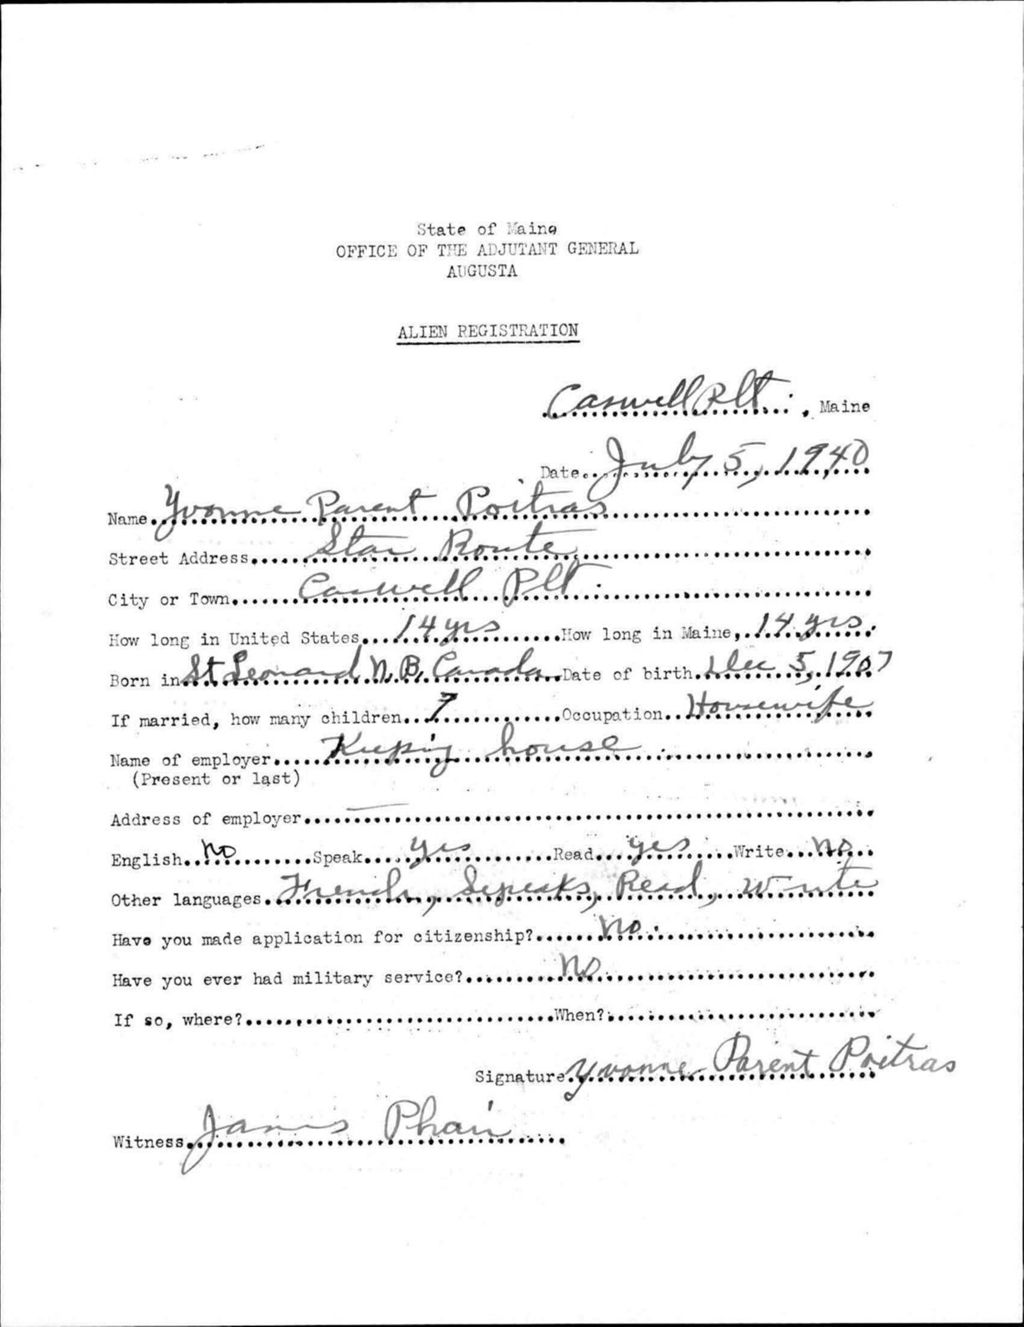 State of Maine
OFFICE OF THE ADJUTANT GENERAL
AUGUSTA
ALIEN REGISTRATION
Caswell Plt., Maine
Date July 5, 1940
Name Yvonne Parent Poitras
Street Address Star Route
City or Town Caswell Plt.
How long in United States 14 yrs How long in Maine, 14 yrs.
Born in St Leonard N.B. Canada Date of birth Dec 5, 1907
If married, how many children 7 Occupation Housewife
Name of employer Keeping house
(Present or last)
Address of employer —
English No Speak yes Read yes Write No
Other languages French, Speaks, Read, Write
Have you made application for citizenship? No.
Have you ever had military service? No
If so, where? When?
Signature Yvonne Parent Poitras
Witness James Phair